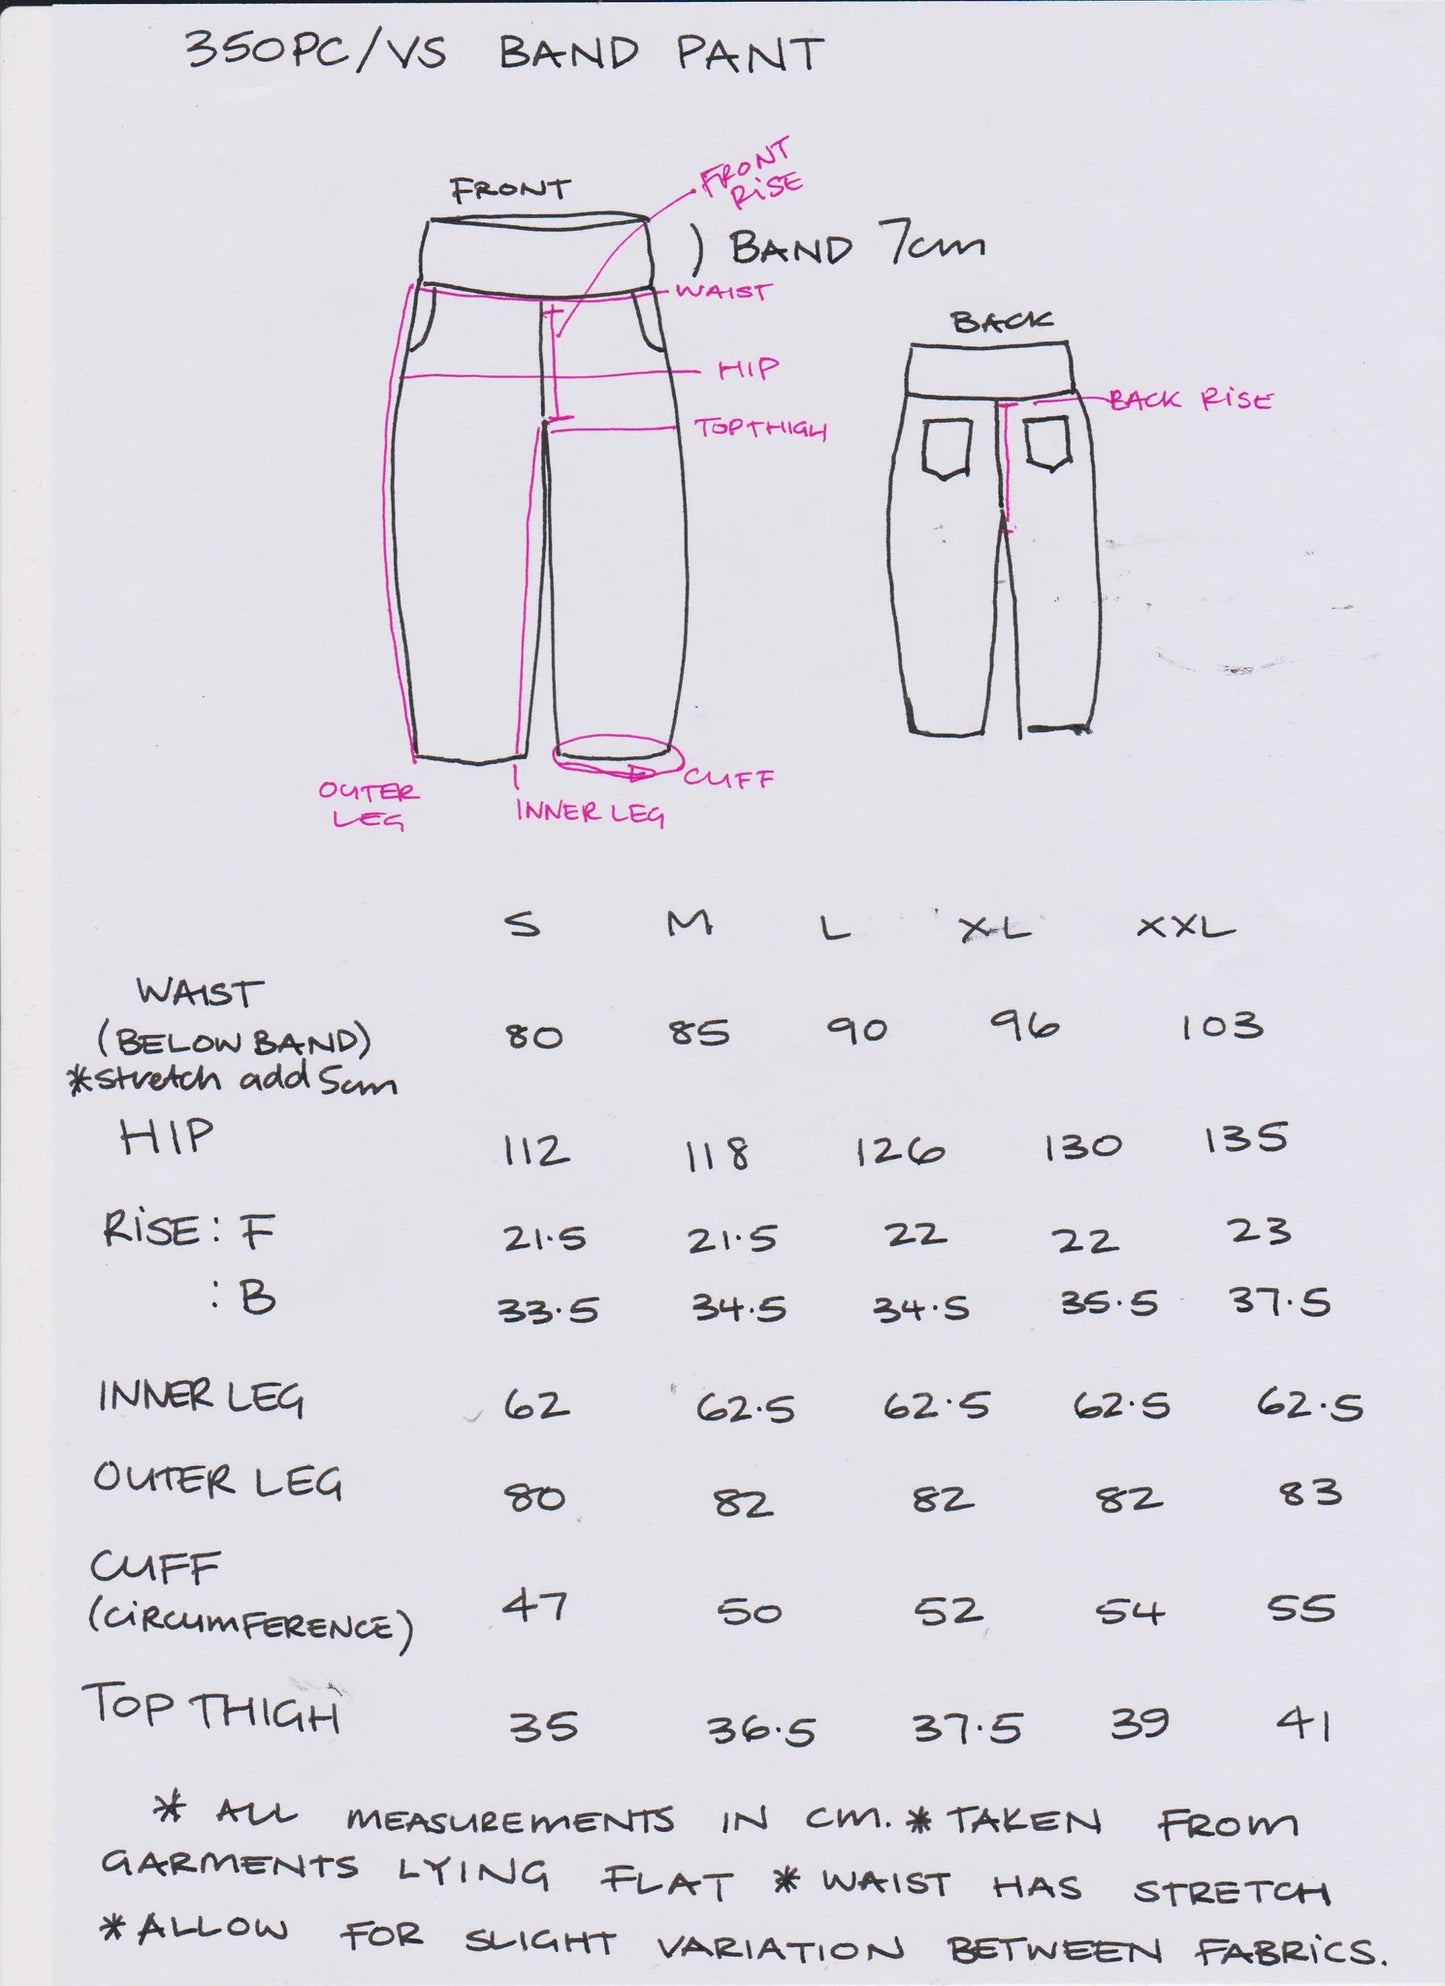 350PC/VS BAND PANT
FRONT
FRONT
RISE
) BAND 7cm
WAIST
BACK
HIP
BACK RISE
TOP THIGH
OUTER
LEG
INNER LEG
CUFF
S M L XL XXL
WAIST
(BELOW BAND) 80 85 90 96 103
*stretch add 5cm
HIP 112 118 126 130 135
RISE: F 21.5 21.5 22 22 23
: B 33.5 34.5 34.5 35.5 37.5
INNER LEG 62 62.5 62.5 62.5 62.5
OUTER LEG 80 82 82 82 83
CUFF
(CIRCUMFERENCE) 47 50 52 54 55
TOP THIGH 35 36.5 37.5 39 41
* ALL MEASUREMENTS IN CM. * TAKEN FROM
GARMENTS LYING FLAT * WAIST HAS STRETCH
* ALLOW FOR SLIGHT VARIATION BETWEEN FABRICS.